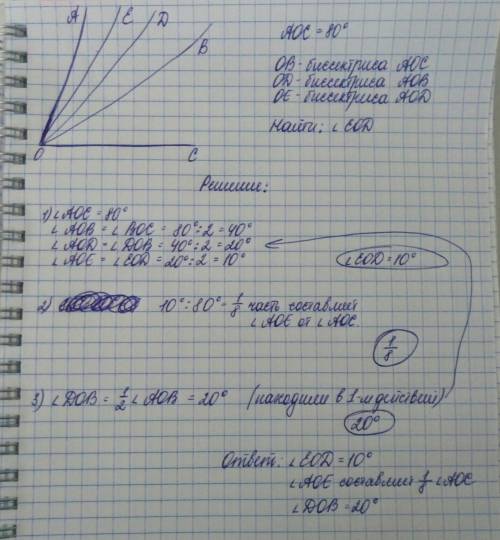 A
E
D
B
O
C
AOC = 80°
OB - биссектриса AOC
OD - биссектриса AOB
OE - биссектриса AOD
Найти: ∠EOD
Решение:
1) ∠AOC = 80°
∠AOB = ∠BOC = 80° : 2 = 40°
∠AOD = ∠DOB = 40° : 2 = 20°
∠AOE = ∠EOD = 20° : 2 = 10°
∠EOD = 10°
2) 10° : 80° = 1/8 часть составляет
∠AOE от ∠AOC.
1/8
3) ∠DOB = 1/2 ∠AOB = 20° (находили в 1-м действии)
20°
Ответ: ∠EOD = 10°
∠AOE составляет 1/8 ∠AOC
∠DOB = 20°